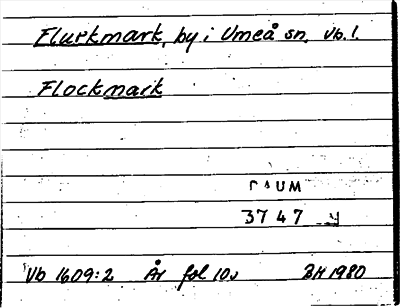 Flurkmark, by i Umeå sn, Vb. l.
Flockmark
DAUM
3747
Vb 1609:2 År fol 10v BH 1980